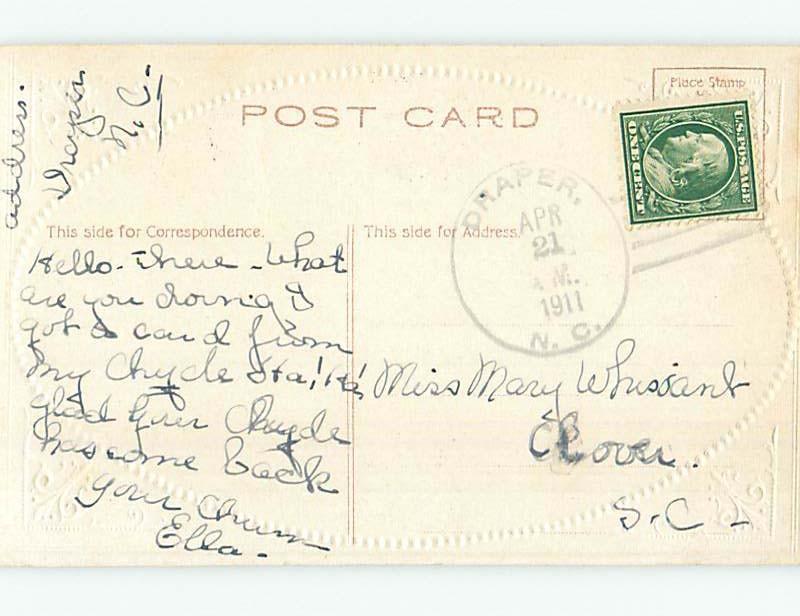 address.
Draper
N.C.
POST CARD
Place Stamp
U.S. POSTAGE
ONE CENT
DRAPER,
APR
21
M.
1911
N. C.
This side for Correspondence.
This side for Address.
Hello- There - What
are you doing I
got a card from
my Clyde Ha! Ha!
glad your Clyde
has come back
your chum
Ella-
Miss Mary Whisant
Clover.
S.C-